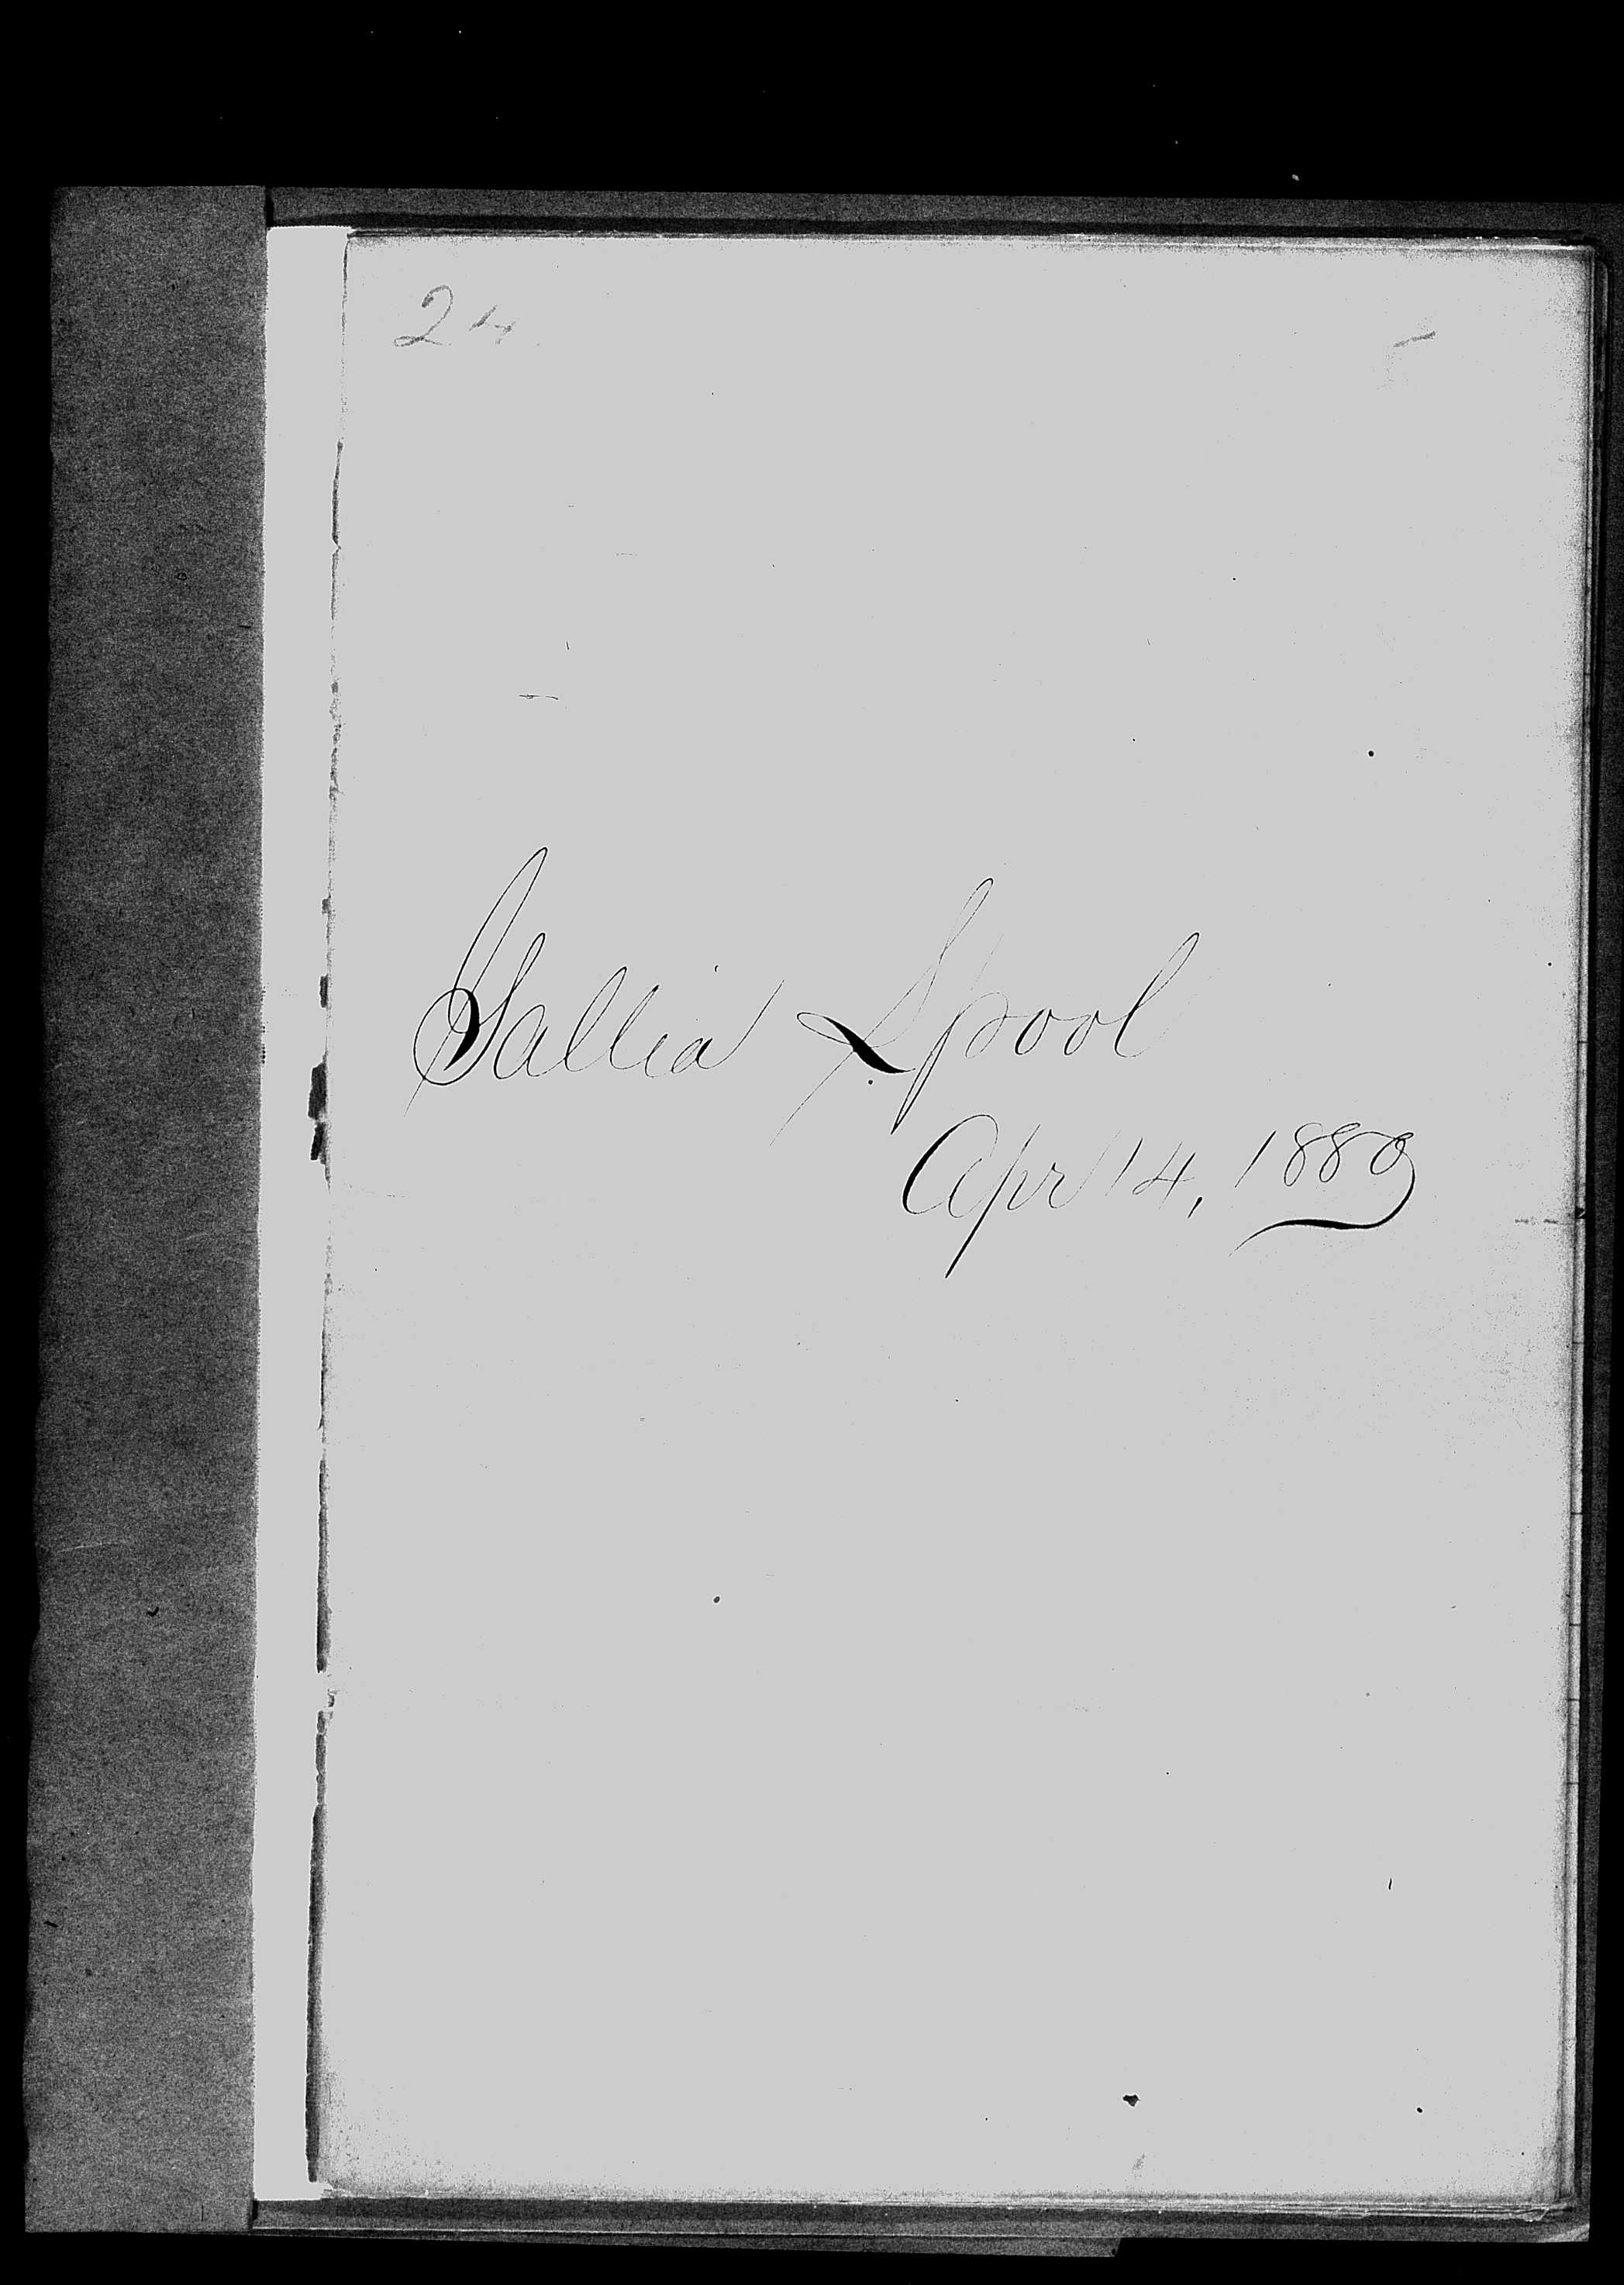 24
Sallia Spool
Apr 14, 1889